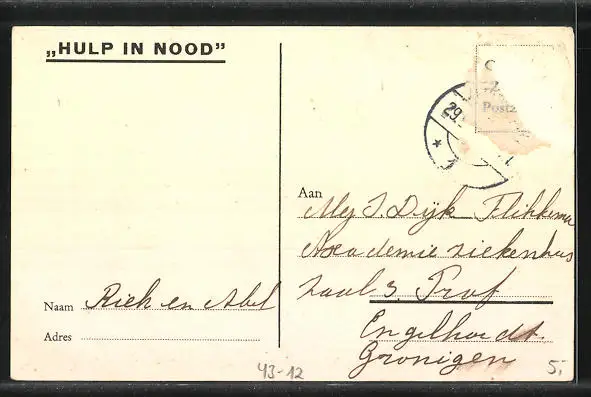 „HULP IN NOOD”
Naam Riek en Abel
Adres
29
Postz
Aan
Mej J. Dijk Flikkema
Academie ziekenhuis
zaal 3. Prof
Engelhardt.
Gronigen
43-12
5,-